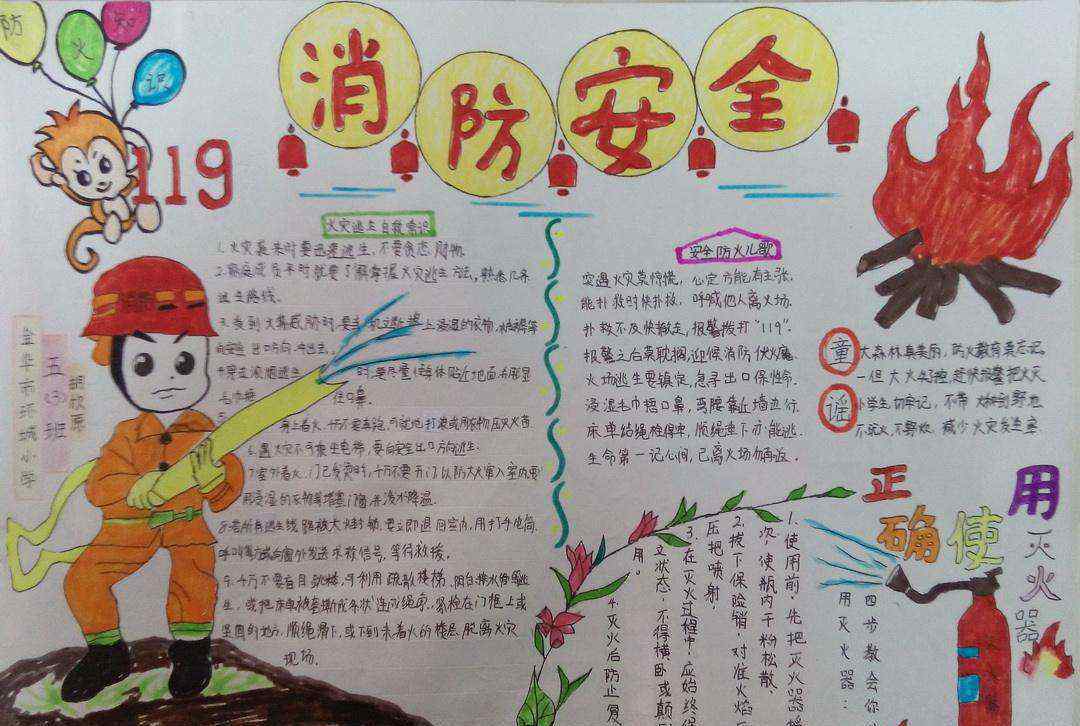 防
火
知
识
119
消防安全
火灾逃生自救常识
1.火灾袭来时要迅速逃生,不要贪恋财物.
2.家庭成员平时就要了解掌握火灾逃生方法,熟悉几条
逃生路线。
3.受到火势威胁时,要当机立断披上浸湿的衣物、
向安全出口方向冲出去。
4.穿过浓烟逃生时,要尽量使身体贴近地面,
毛巾捂住口鼻。
身上着火,千万不要奔跑,可就地打滚或用厚衣物压灭火苗.
6.遇火灾不可乘坐电梯,要向安全出口方向逃生.
7.室外着火,门已发烫时,千万不要开门,以防大火窜入室内,要
用浸湿的衣物等堵塞门窗,并浇水降温.
8.若所有逃生线路被大火封锁,要立即退回室内,用打手电筒、
呼叫等方式向窗外发送求救信号,等待救援。
9.千万不要盲目跳楼,可利用疏散楼梯、阳台、
生,或把床单被套撕成条状连成绳索,紧拴在门框上或
顺绳滑下,或下到未着火的楼层,脱离火灾
现场.
金华市环城小学
五(3)班
胡欣原
安全防火儿歌
突遇火灾莫惊慌,心定方能有主张.
能扑救时快扑救,呼喊他人离火场.
扑救不及快撤走,报警拨打“119”.
报警之后莫耽搁,迎候消防伏火魔.
火场逃生要镇定,急寻出口保性命.
浸湿毛巾捂口鼻,弯腰靠近墙边行.
床单结绳拴得牢,顺绳垂下亦能逃.
生命第一记心间,已离火场勿再返.
童谣
大森林真美丽,防火教育莫忘记.
一旦大火,赶快报警把火灭
小学生切牢记,不带火种到野地
不玩火,减少火灾发生率
正确使用灭火器
四步教会你
用灭火器:
1.使用前,先把灭火器摇
次,使瓶内干粉松散.
2.拔下保险销,对准火焰
压把喷射.
3.在灭火过程中,应始终保
立状态,不得横卧或颠
用。
4.灭火后防止复